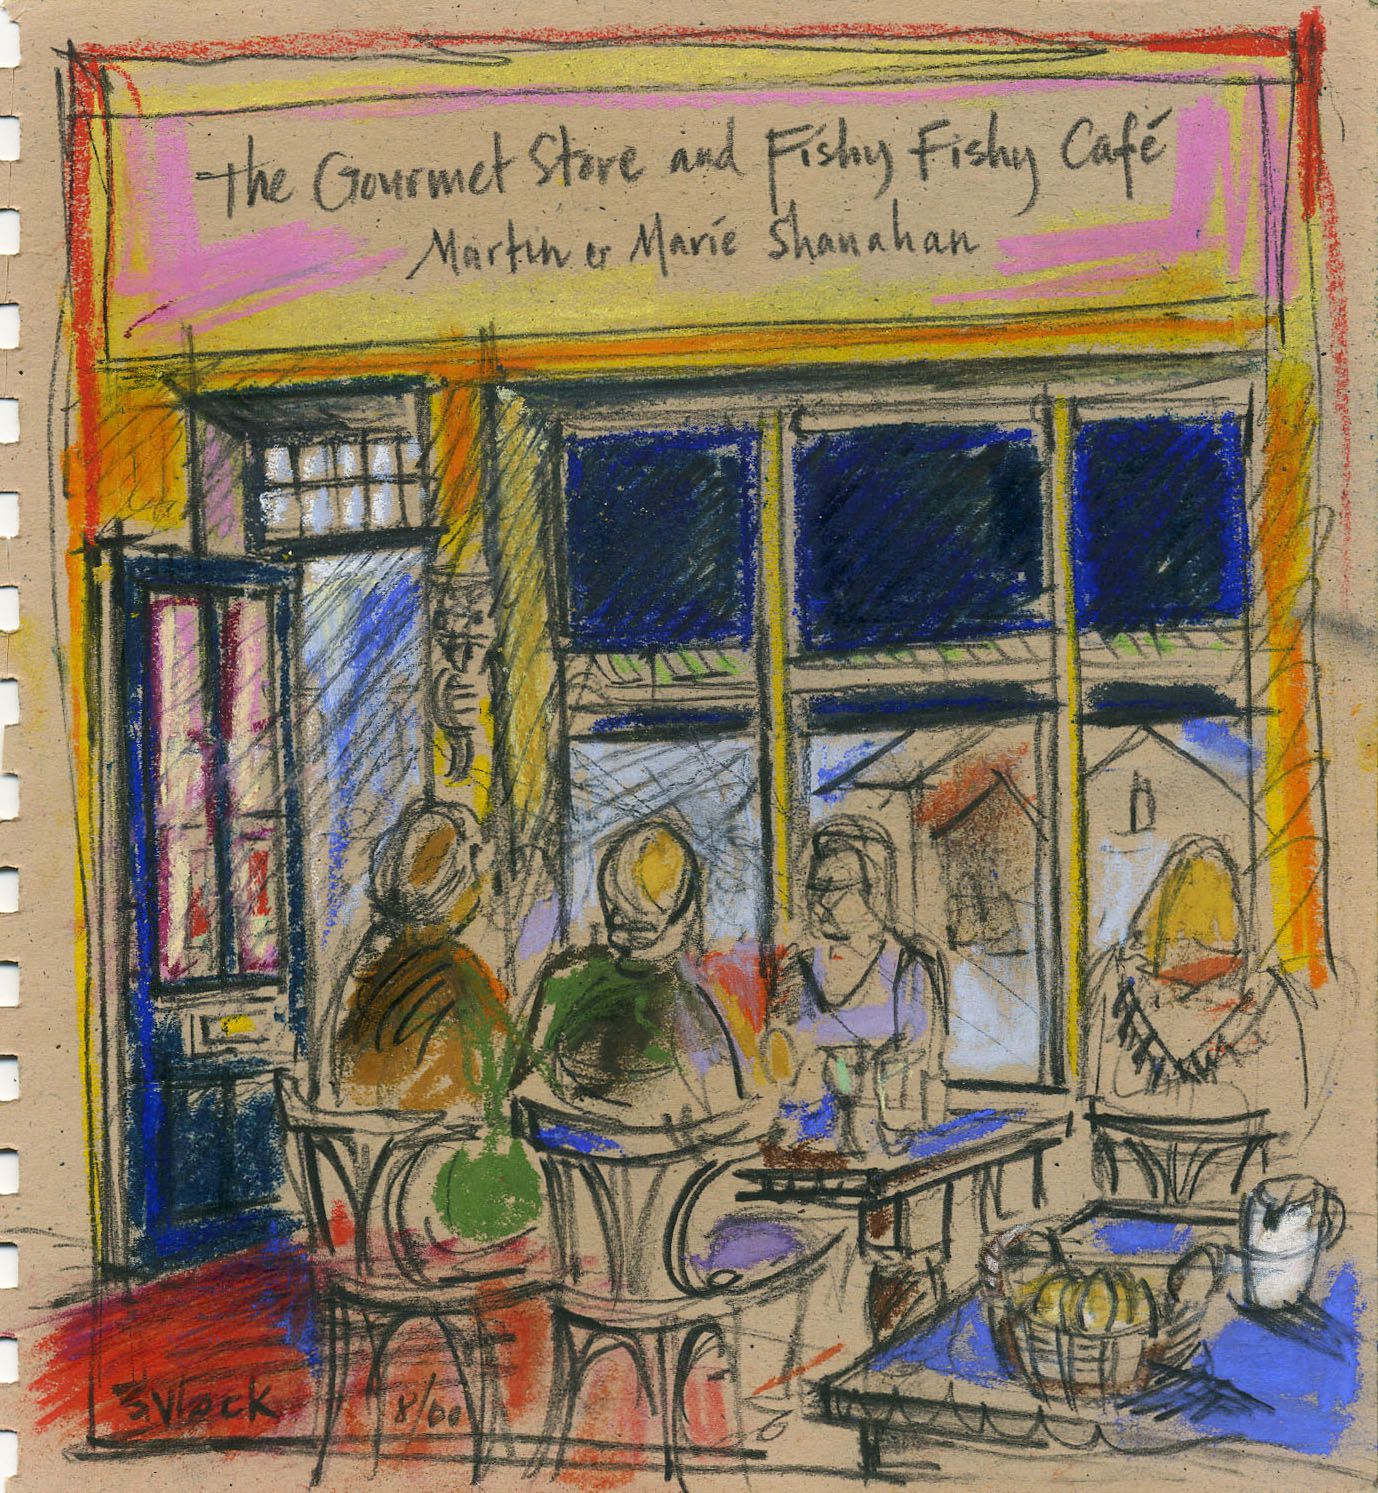 The Gourmet Store and Fishy Fishy Café
Martin & Marie Shanahan
8/00